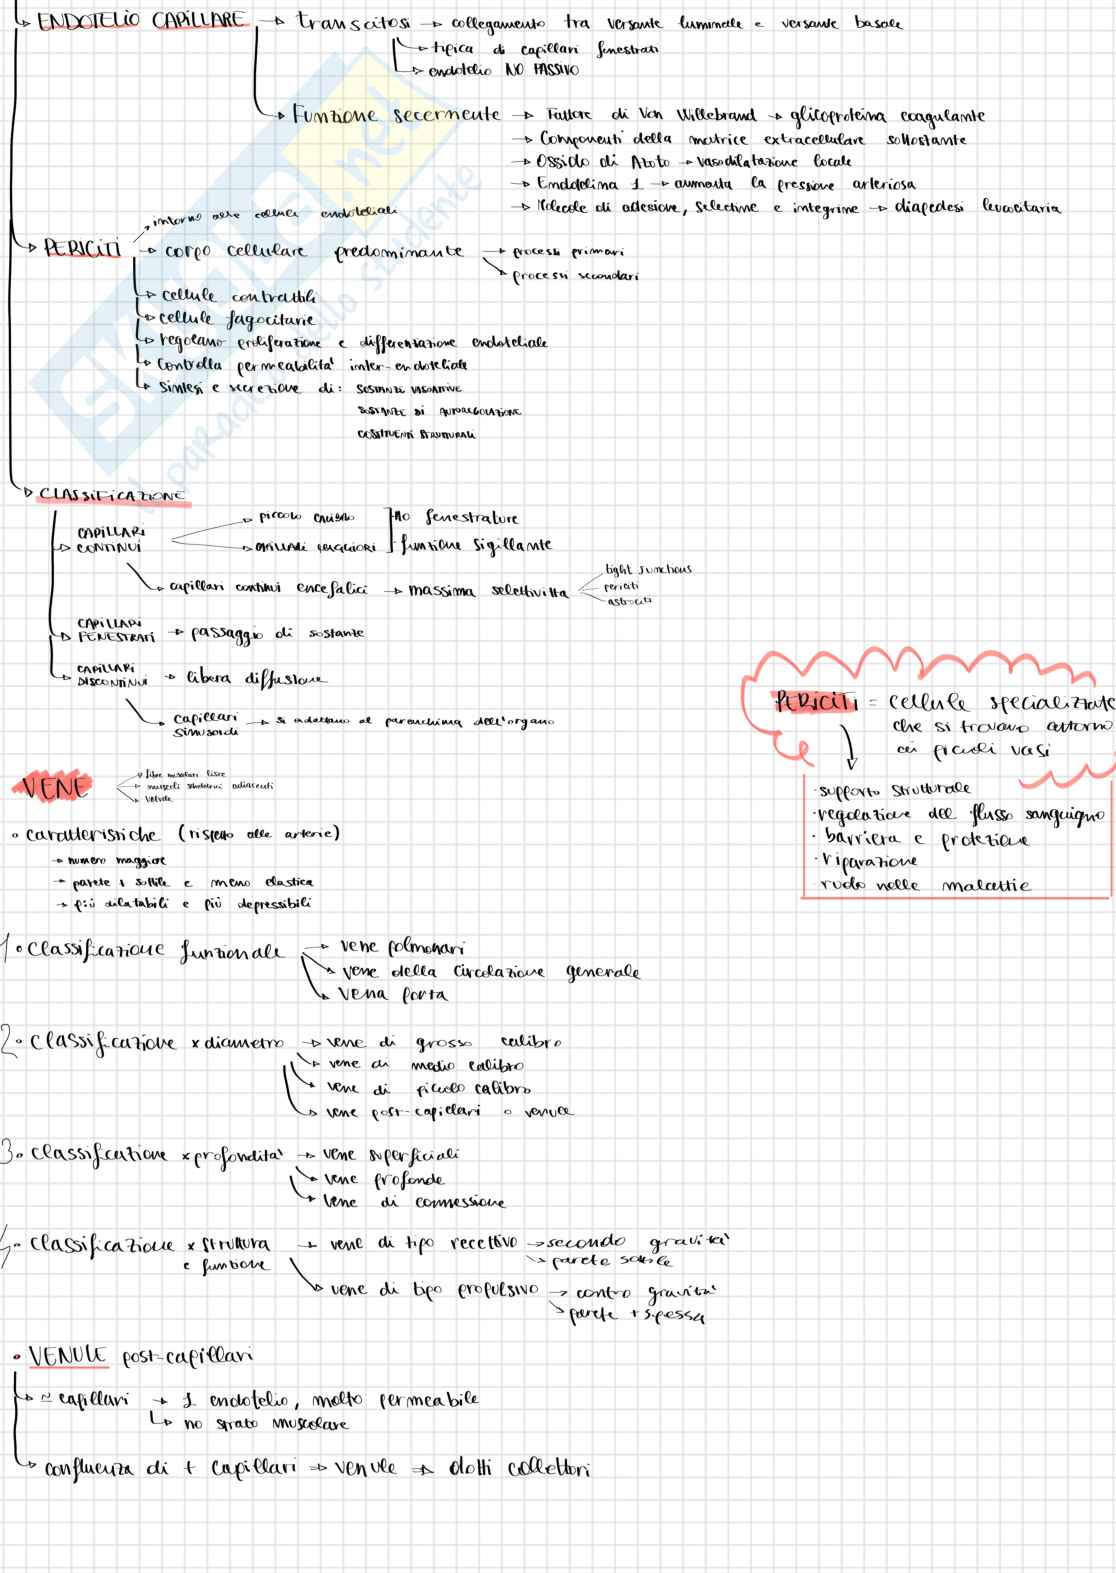 ENDOTELIO CAPILLARE → transcitosi → collegamento tra versante luminale e versante basale
→ tipica di capillari fenestrati
→ endotelio NO PASSIVO
→ Funzione secernente → Fattore di Von Willebrand → glicoproteina coagulante
→ Componenti della matrice extracellulare sottostante
→ Ossido di Azoto → vasodilatazione locale
→ Endotelina 1 → aumenta la pressione arteriosa
→ Molecole di adesione, selectine e integrine → diapedesi leucocitaria
intorno alle cellule endoteliali
PERICITI → corpo cellulare predominante → processi primari
→ processi secondari
→ cellule contrattili
→ cellule fagocitarie
→ regolano proliferazione e differenzazione endoteliale
→ Controlla permeabilità inter-endoteliale
→ sintesi e secrezione di: SOSTANZE VASOATTIVE
SOSTANZE DI AUTOREGOLAZIONE
COSTITUENTI STRUTTURALI
CLASSIFICAZIONE
CAPILLARI CONTINUI → piccolo calibro
→ CAPILLARI MAGGIORI
NO fenestrature
funzione sigillante
→ capillari continui encefalici → massima selettività
tight junctions
periciti
astrociti
CAPILLARI FENESTRATI → passaggio di sostanze
CAPILLARI DISCONTINUI → libera diffusione
→ capillari sinusoidi → si adattano al parenchima dell'organo
PERICITI = cellule specializzate
che si trovano attorno
ai piccoli vasi
· supporto strutturale
· regolazione del flusso sanguigno
· barriera e protezione
· riparazione
· ruolo nelle malattie
VENE
→ fibre muscolari lisce
→ muscoli scheletrici adiacenti
→ valvole
• caratteristiche (rispetto alle arterie)
→ numero maggiore
→ parete + sottile e meno elastica
→ più dilatabili e più depressibili
1• Classificazione funzionale → vene polmonari
→ vene della circolazione generale
→ vena porta
2• Classificazione x diametro → vene di grosso calibro
→ vene di medio calibro
→ vene di piccolo calibro
→ vene post-capillari o venule
3• Classificazione x profondità → vene superficiali
→ vene profonde
→ vene di connessione
4• Classificazione x struttura e funzione → vene di tipo recettivo → secondo gravità
→ parete sottile
→ vene di tipo propulsivo → contro gravità
→ parete + spessa
• VENULE post-capillari
→ ≃ capillari → 1 endotelio, molto permeabile
→ no strato muscolare
→ confluenza di + capillari → venule → dotti collettori